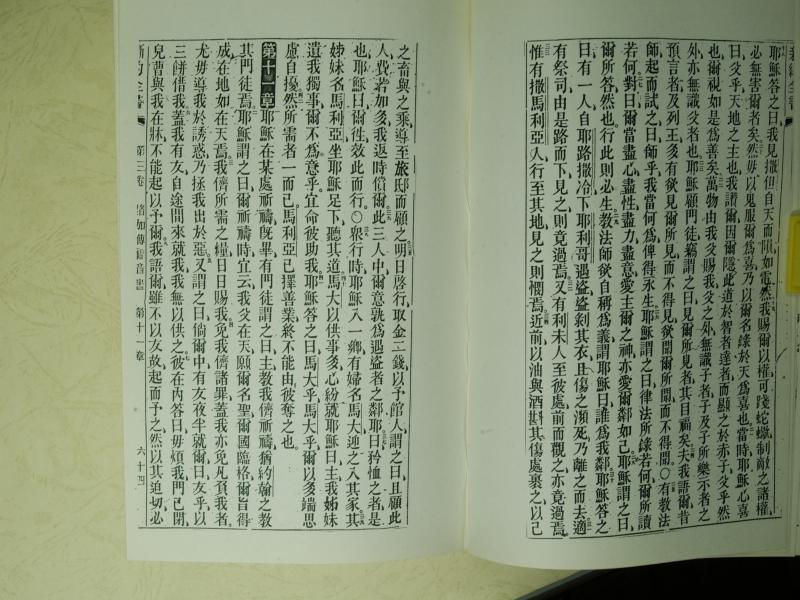 新約全書
耶穌答之曰我見撒但自天而隕如電然我賜爾以權可踐蛇蠍制敵之諸權
必無害爾者矣然毋以鬼服爾爲喜乃以爾名錄於天爲喜也當時耶穌心喜
曰父乎天地之主也我讚爾因爾隱此道於智者達者而顯之於赤子父乎然
也爾視如是爲善矣萬物由我父賜我父之外無識子者子及子所樂示者之
外亦無識父者也耶穌顧門徒竊謂之曰見爾所見者其目福矣夫我語爾昔
預言者及列王多有欲見爾所見而不得見欲聞爾所聞而不得聞○有教法
師起而試之曰師乎我當何爲俾得永生耶穌謂之曰律法所錄若何爾所讀
若何對曰爾當盡心盡性盡力盡意愛主爾之神亦愛爾鄰如己耶穌謂之曰
爾所答然也行此則必生教法師欲自稱爲義謂耶穌曰誰爲我鄰耶穌答之
曰有一人自耶路撒冷下耶利哥遇盜盜剝其衣且傷之瀕死乃離之而去適
有祭司由是路而下見之則竟過焉又有利未人至彼處前而觀之亦竟過焉
惟有撒馬利亞人行至其地見之則憫焉近前以油與酒斟其傷處裹之以己
之畜與之乘導至旅邸而顧之明日啓行取金二錢以予館人謂之曰且顧此
人費若加多我返時償爾此三人中爾意孰爲遇盜者之鄰耶曰矜恤之者是
也耶穌曰爾往效此而行○眾行時耶穌入一鄉有婦名馬大迎之入其家其
姊妹名馬利亞坐耶穌足下聽其道馬大以供事多心紛就耶穌曰主我姊妹
遺我獨事爾不爲意乎宜命彼助我耶穌答之曰馬大乎馬大乎爾以多端思
慮自擾然所需者一而已馬利亞已擇善業終不能由彼奪之也
第十一章 耶穌在某處祈禱旣畢有門徒謂之曰主教我儕祈禱猶約翰之教
其門徒焉耶穌謂之曰爾祈禱時宜云我父在天願爾名聖爾國臨格爾旨得
成在地如在天焉我儕所需之糧日日賜我免我儕諸罪蓋我亦免凡負我者
尤毋導我於誘惑乃拯我出於惡又謂之曰倘爾中有友夜半就爾曰友乎以
三餅借我蓋我有友自途間來就我我無以供之彼在內答曰毋煩我門已閉
兒曹與我在牀不能起以予爾我語爾雖不以友故起而予之然以其迫切必
新約全書 第三卷 路加傳福音書 第十一章 六十四